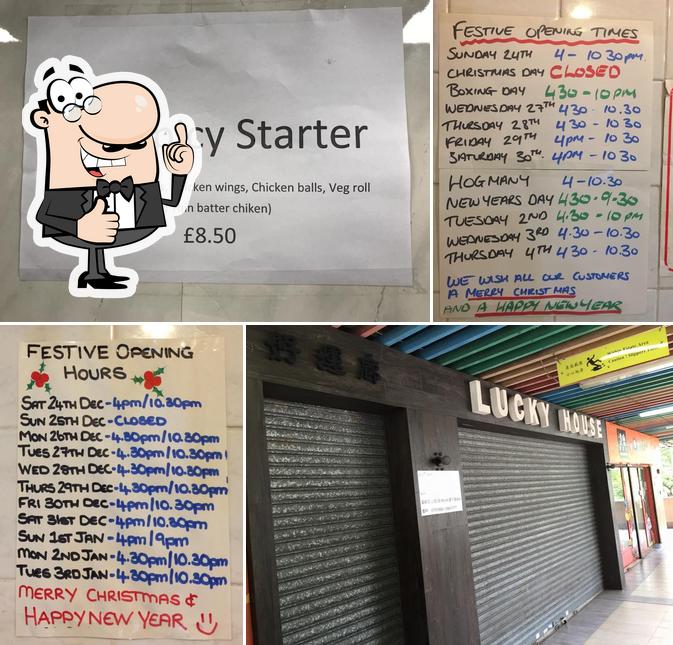 cy Starter
ken wings, Chicken balls, Veg roll
in batter chiken)
£8.50
FESTIVE OPENING TIMES
SUNDAY 24TH 4 - 10 30pm.
CHRISTMAS DAY CLOSED
BOXING DAY 4 30 - 10 PM
WEDNESDAY 27TH 4 30 - 10.30
THURSDAY 28TH 4 30 - 10 30
FRIDAY 29TH 4PM - 10 30
SATURDAY 30TH. 4PM - 10 30
HOGMANY 4 - 10.30
NEW YEARS DAY 4.30 - 9.30
TUESDAY 2ND 4.30 - 10 PM
WEDNESDAY 3RD 4.30 - 10.30
THURSDAY 4TH 4 30 - 10.30
WE WISH ALL OUR CUSTOMERS
A MERRY CHRISTMAS
AND A HAPPY NEW YEAR
FESTIVE OPENING
HOURS
SAT 24TH DEC - 4pm/10.30pm
SUN 25TH DEC - CLOSED
MON 26TH DEC - 4.30pm/10.30pm
TUES 27TH DEC - 4.30pm/10.30pm
WED 28TH DEC - 4.30pm/10.30pm
THURS 29TH DEC - 4.30pm/10.30pm
FRI 30TH DEC - 4pm/10.30pm
SAT 31ST DEC - 4pm/10.30pm
SUN 1ST JAN - 4pm/9pm
MON 2ND JAN - 4.30pm/10.30pm
TUES 3RD JAN - 4.30pm/10.30pm
MERRY CHRISTMAS &
HAPPY NEW YEAR
LUCKY HOUSE